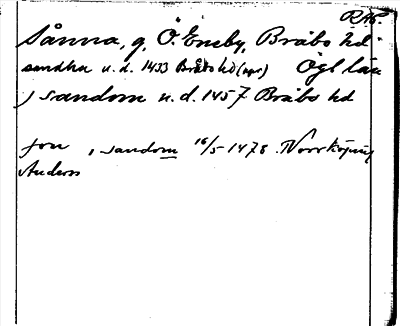 RAP.
Sånna, g, Ö. Eneby, Bråbo hd
sandha u. d. 1433 Bråbo hd (or) Ögl län
) sandom u. d. 1457 Bråbo hd
jon , sandom 16/5-1478 Norrköping
Anders